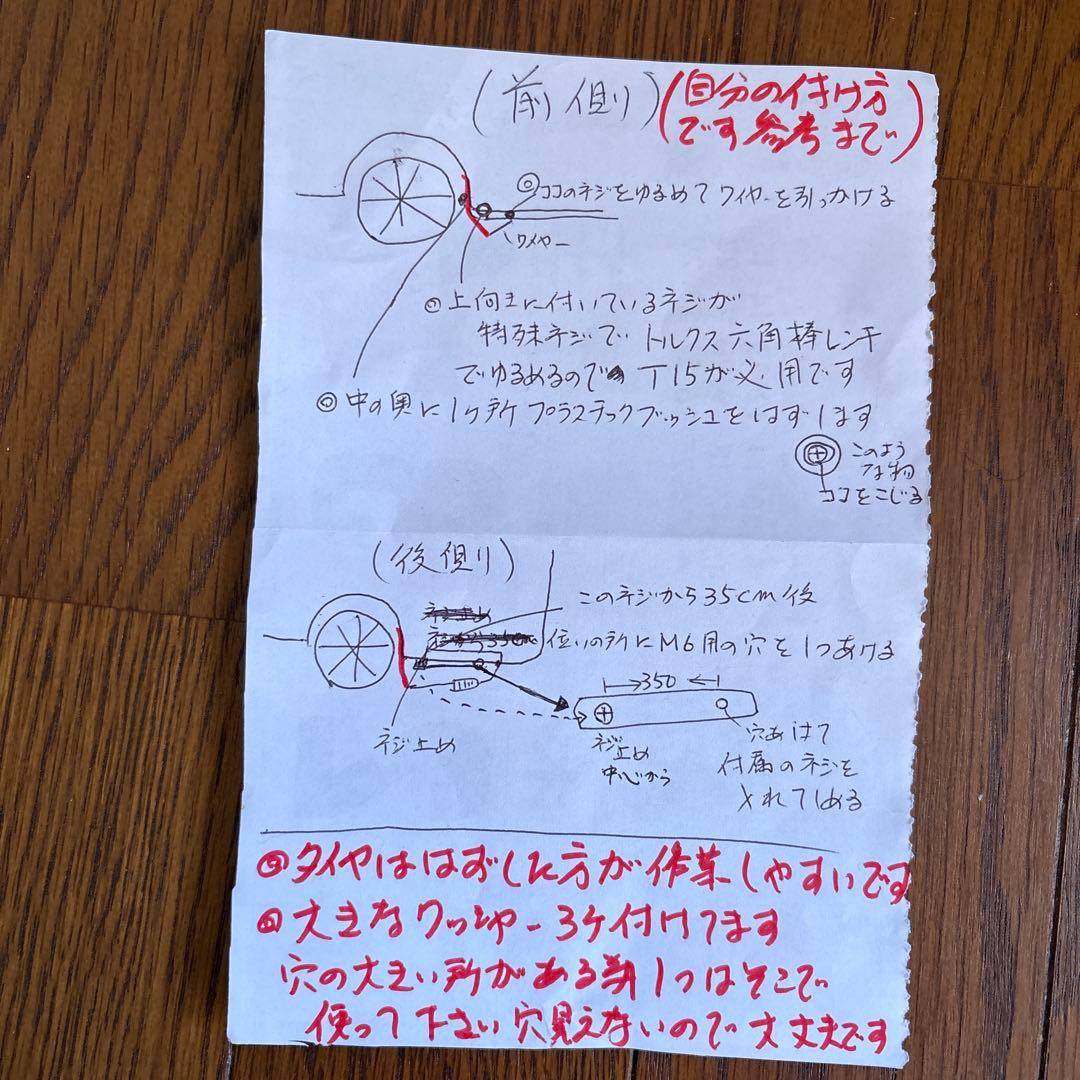 (前側)
(自分の付け方
です参考まで)
◎ココのネジをゆるめてワイヤーを引っかける
ワイヤー
◎上向きに付いているネジが
特殊ネジでトルクス六角棒レンチ
でゆるめるので T15が必用です
◎中の奥に1ヶ所プラスチックブッシュをはずします
このよう
な物
ココをこじる
(後側)
このネジから35cm後
位いの所にM6用の穴を1つあける
350
ネジ止め
ネジ
止め
中心から
穴あけて
付属のネジを
入れてしめる
◎タイヤははずした方が作業しやすいです
◎大きなワッシャー3ケ付けてます
穴の大きい所がある為1つはそこで
使って下さい穴見えないので大丈夫です